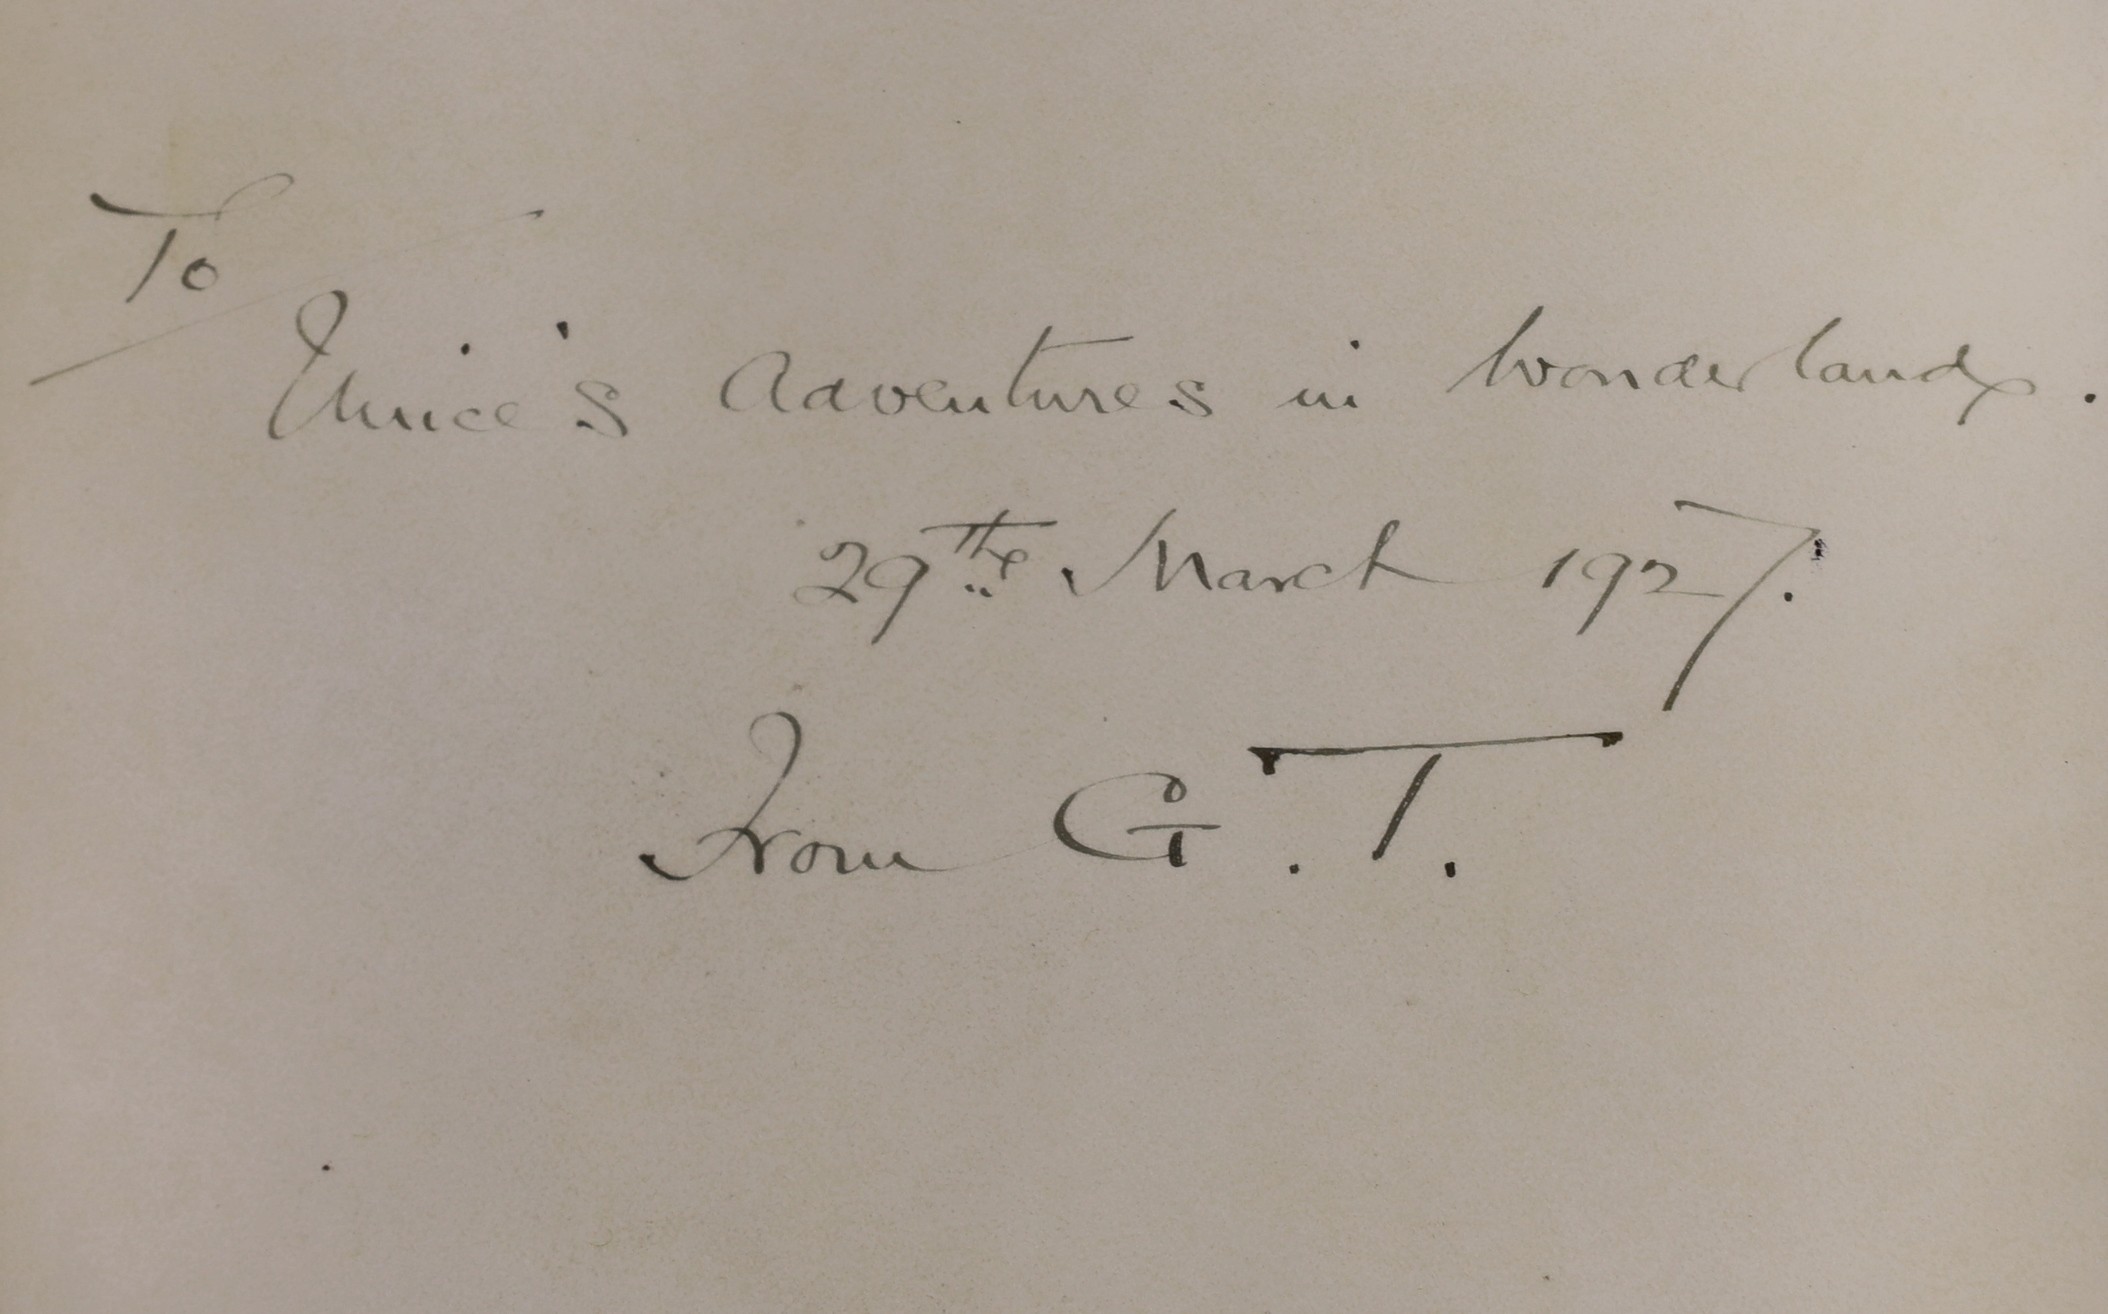 To
Eunice's Adventures in Wonderland.
29th March 1927.
From G.T.